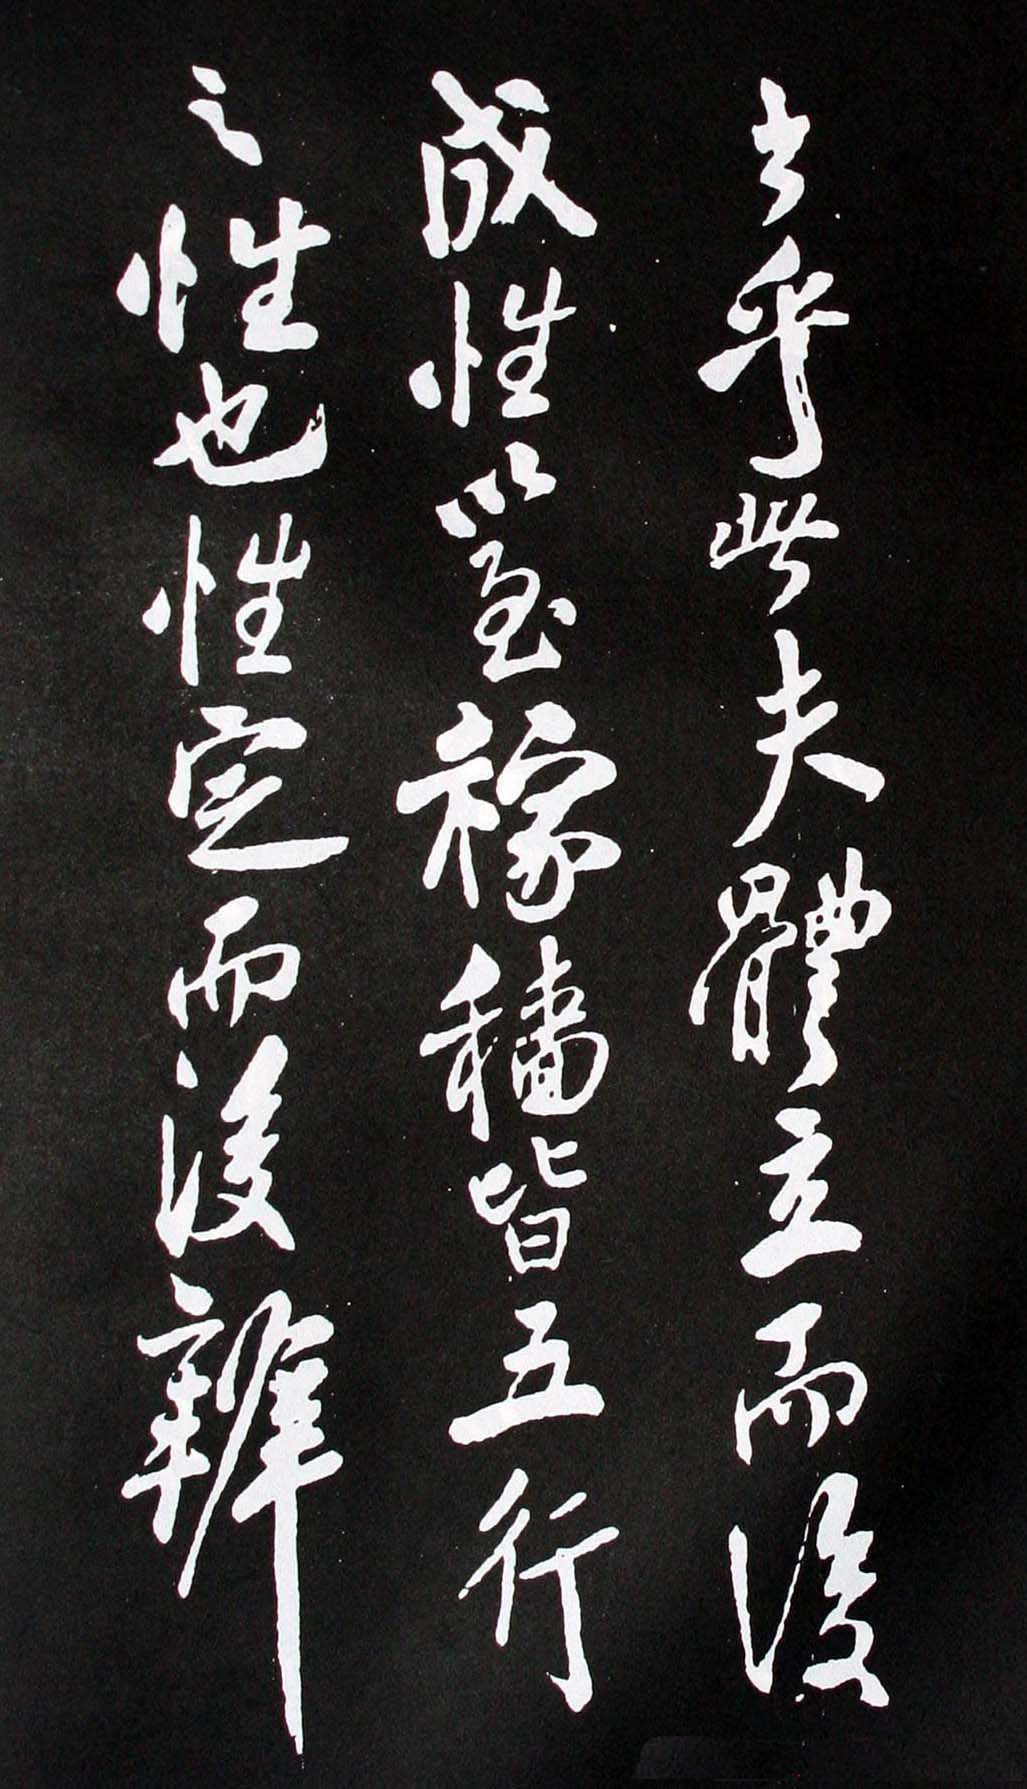 出乎此夫體立而後
成性以至稼穡皆五行
之性也性定而後辨